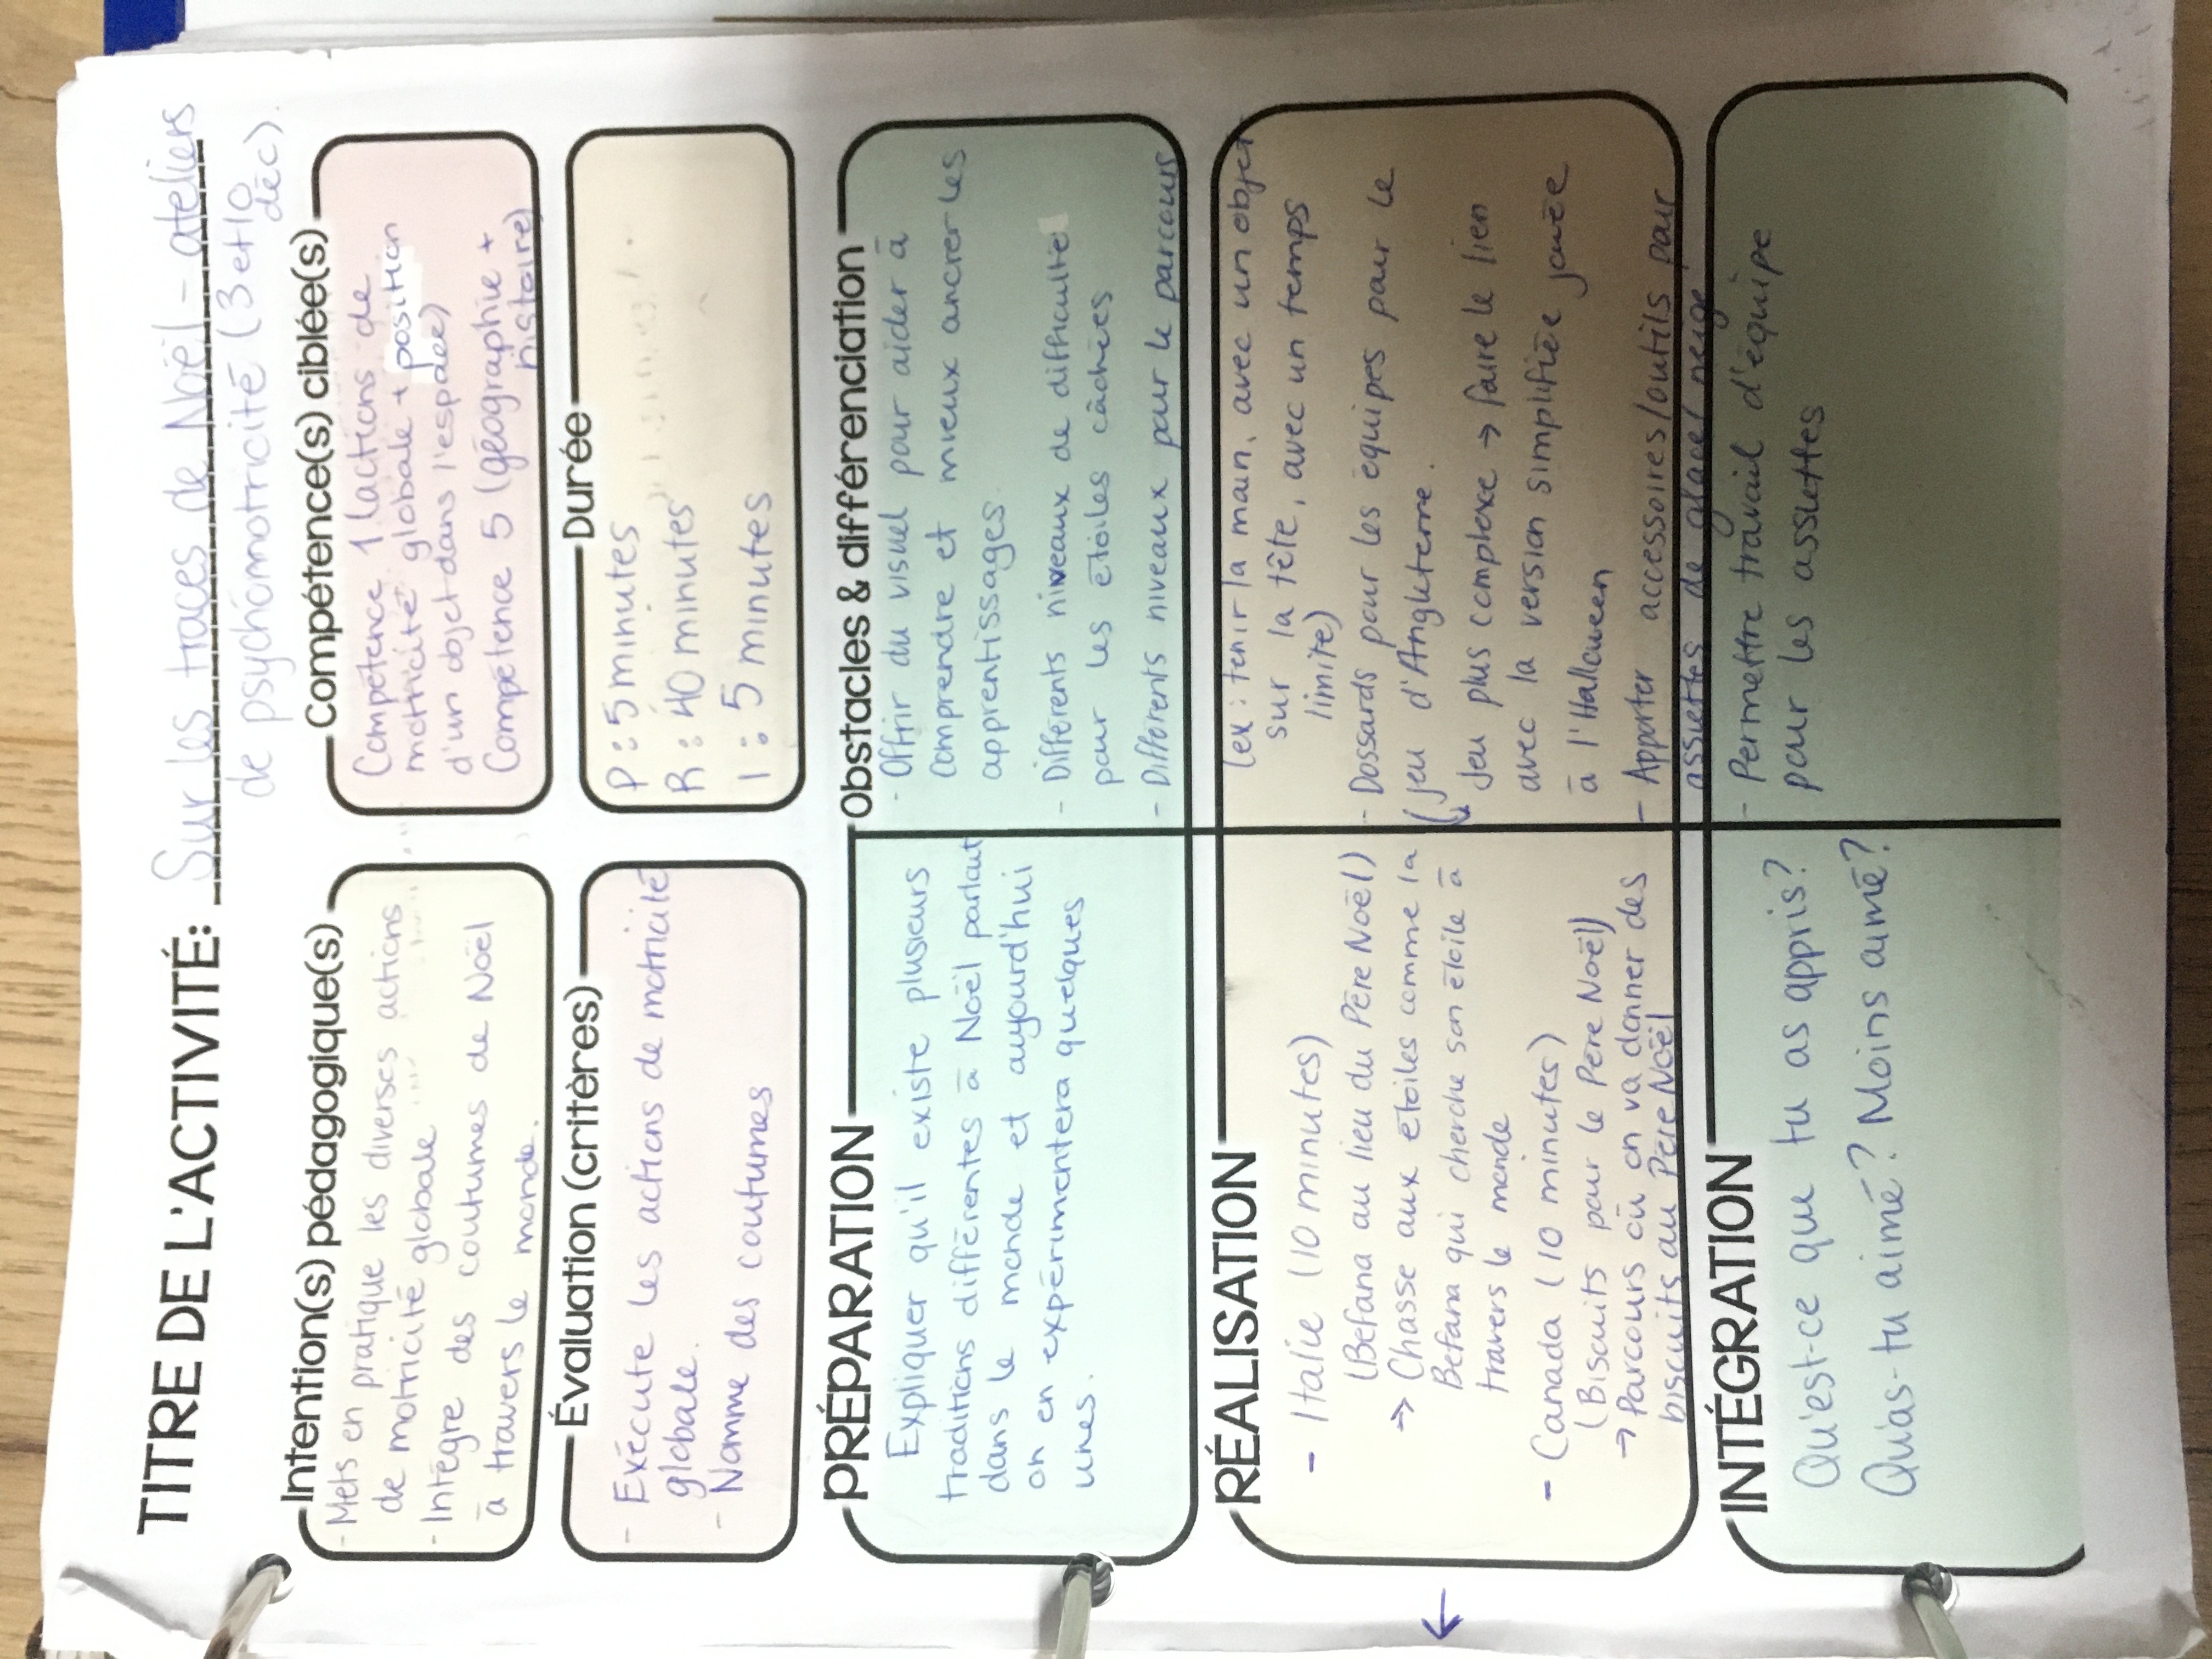 TITRE DE L'ACTIVITÉ: Sur les traces de Noël - ateliers
de psychomotricité (3 et 10
déc)
Intention(s) pédagogique(s)
- Mets en pratique les diverses actions
de motricité globale
- Intègre des coutumes de Noël
à travers le monde.
Compétence(s) ciblée(s)
Compétence 1 (actions de
motricité globale + position
d'un objet dans l'espace)
Compétence 5 (géographie +
histoire)
Évaluation (critères)
- Exécute les actions de motricité
globale.
- Nomme des coutumes
Durée
P : 5 minutes
R : 40 minutes
I : 5 minutes
PRÉPARATION
Expliquer qu'il existe plusieurs
traditions différentes à Noël partout
dans le monde et aujourd'hui
on en expérimentera quelques
unes.
Obstacles & différenciation
- Offrir du visuel pour aider à
comprendre et mieux ancrer les
apprentissages.
- Différents niveaux de difficulté
pour les étoiles cachées
- Différents niveaux pour le parcours
RÉALISATION
- Italie (10 minutes)
(Befana au lieu du Père Noël)
→ Chasse aux étoiles comme la
Befana qui cherche son étoile à
travers le monde
- Canada (10 minutes)
(Biscuits pour le Père Noël)
→ Parcours où on va donner des
biscuits au Père Noël
(ex : tenir la main, avec un objet
sur la tête, avec un temps
limite)
- Dossards pour les équipes pour le
(jeu d'Angleterre.
↳ Jeu plus complexe → faire le lien
avec la version simplifiée jouée
à l'Halloween
- Apporter accessoires/outils pour
assiettes de glace/neige
INTÉGRATION
Qu'est-ce que tu as appris?
Qu'as-tu aimé? Moins aimé?
- Permettre travail d'équipe
pour les assiettes
←